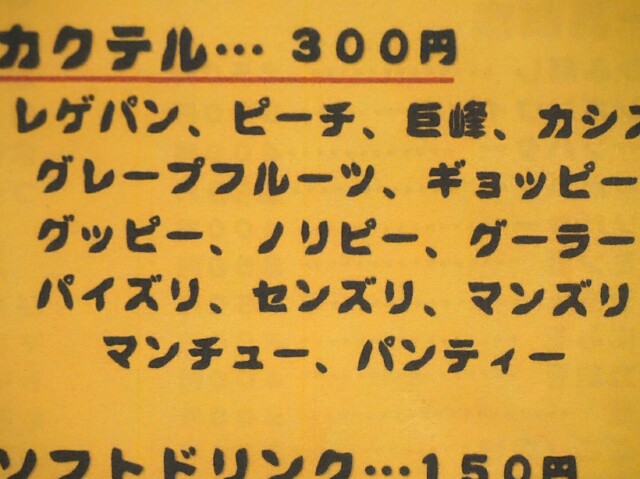 カクテル… 300円
レゲパン、ピーチ、巨峰、カシス
グレープフルーツ、ギョッピー
グッピー、ノリピー、グーラー
パイズリ、センズリ、マンズリ
マンチュー、パンティー
ソフトドリンク…150円